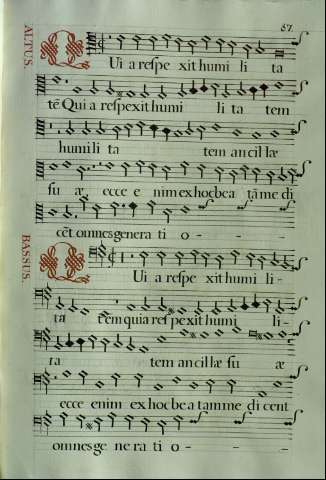 87.
ALTUS.
QUi a respe xit humi li ta
tẽ Qui a respexit humi li ta tem
humili ta tem ancillæ
su æ, ecce e nim ex hoc bea tãme di
cẽt omnes genera ti o - - - -
BASSUS.
QUi a respe xit humi li -
ta tem quia respexit humi li -
ta tem ancillæ su æ
ecce enim ex hoc bea tamme dicent
omnes ge ne ra ti o - - -